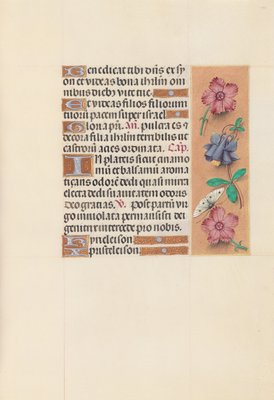 Benedicat tibi dñs ex sy
on et videas bona ihrlm om
nibus diebus vite tue.
Et videas filios filiorum
tuorũ pacem super israel
Gloria pr̃i. An̄. Pulcra es et
decora filia ihrlm terribilis ut
castrorũ acies ordinata. Cap.
In plateis sicut cynamo
mũ et balsamũ aroma
tizans odorẽ dedi quasi mirra
electa dedi suavitatem odoris
Deo gratias. V. Post partũ vir
go inviolata permansisti dei
genitrix intercede pro nobis.
Kyrieleison
Xp̃isteleison